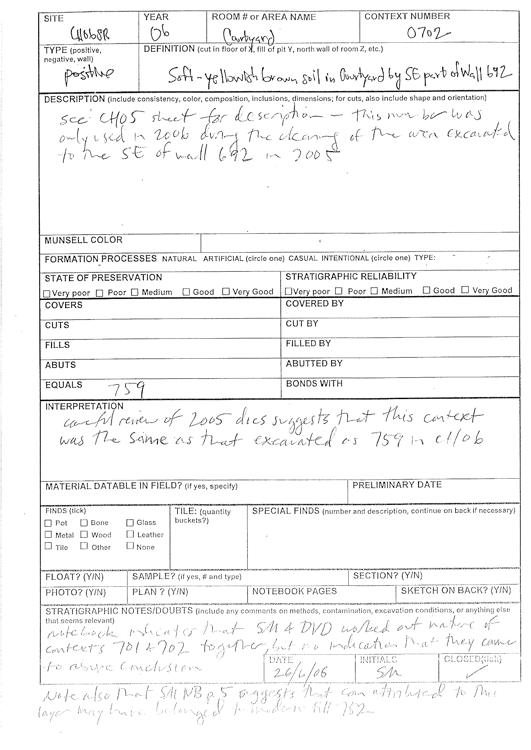 SITE
CH06SR
YEAR
06
ROOM # or AREA NAME
Courtyard
CONTEXT NUMBER
0702
TYPE (positive, negative, wall)
positive
DEFINITION (cut in floor of X, fill of pit Y, north wall of room Z, etc.)
Soft-yellowish brown soil in Courtyard by SE part of Wall 692
DESCRIPTION (include consistency, color, composition, inclusions, dimensions; for cuts, also include shape and orientation)
see CH05 sheet for description - this number was
only used in 2006 during the cleaning of the area excavated
to the SE of wall 692 in 2005
MUNSELL COLOR
FORMATION PROCESSES NATURAL ARTIFICIAL (circle one) CASUAL INTENTIONAL (circle one) TYPE:
STATE OF PRESERVATION
Very poor Poor Medium Good Very Good
STRATIGRAPHIC RELIABILITY
Very poor Poor Medium Good Very Good
COVERS
COVERED BY
CUTS
CUT BY
FILLS
FILLED BY
ABUTS
ABUTTED BY
EQUALS 759
BONDS WITH
INTERPRETATION
careful review of 2005 docs suggests that this context
was the same as that excavated as 759 in CH06
MATERIAL DATABLE IN FIELD? (if yes, specify)
PRELIMINARY DATE
FINDS (tick)
Pot Bone Glass
Metal Wood Leather
Tile Other None
TILE: (quantity buckets?)
SPECIAL FINDS (number and description, continue on back if necessary)
FLOAT? (Y/N)
SAMPLE? (if yes, # and type)
SECTION? (Y/N)
PHOTO? (Y/N)
PLAN ? (Y/N)
NOTEBOOK PAGES
SKETCH ON BACK? (Y/N)
STRATIGRAPHIC NOTES/DOUBTS (include any comments on methods, contamination, excavation conditions, or anything else
that seems relevant)
notebook indicates that SM & DVD worked out nature of
contexts 701 & 702 together, but no indication that they came
to above conclusion
DATE
26/6/06
INITIALS
SM
CLOSED (tick)
✓
Note also that SM NB p. 5 suggests that coin attributed to this
layer may have belonged to modern fill 752